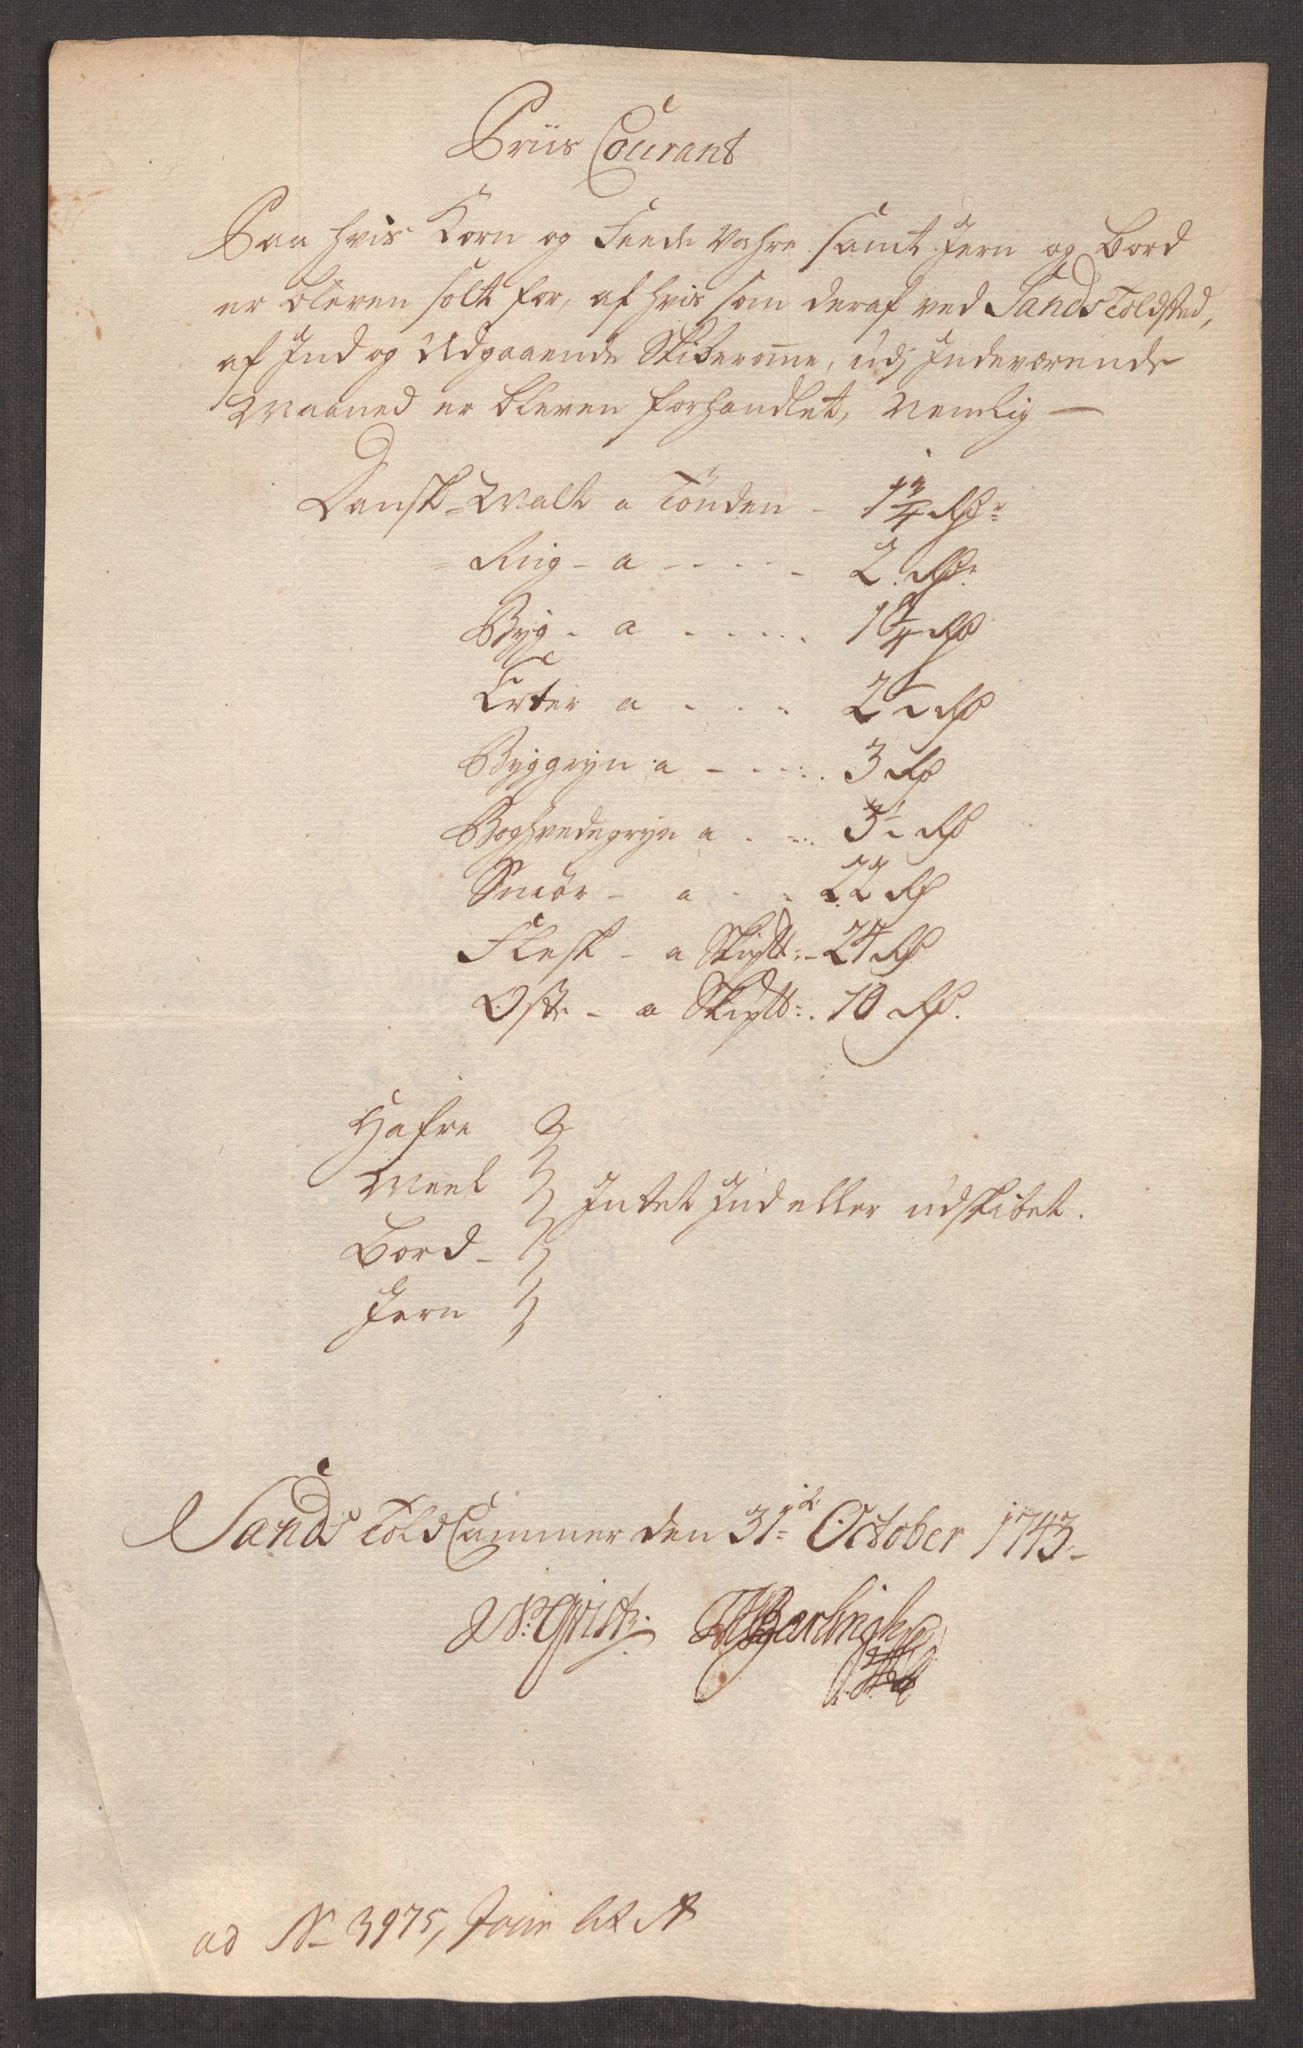 Priis Courant
Paa hvis Korn og Feede Vahre samt Jern og Bord
er bleven solt for, af hvis som deraf ved Sands Toldsted,
af Ind og Udgaaende Skiberome, udj Indeværende
Maaned er bleven forhandlet, Nemlig —
Dansk - Malt a Tönden - 1 3/4 Rdr
= Rug - a - - - - 2 Rdr
Byg - a - - - - 1 3/4 Rd
Erter a - - - 2 1/2 Rd
Byggryn a - - - - 3 Rd
Boghvedegryn a - - - 3 1/2 Rd
Smör - a - - 22 Rd
Flesk - a Skip\ - 24 Rd
Oste - a Skip\ - 10 Rd.
Hafre
Meel
Intet Ind eller udskibet.
Bord -
Jern
Sands Told Cammer den 31te October 1743
ad No 3975, A